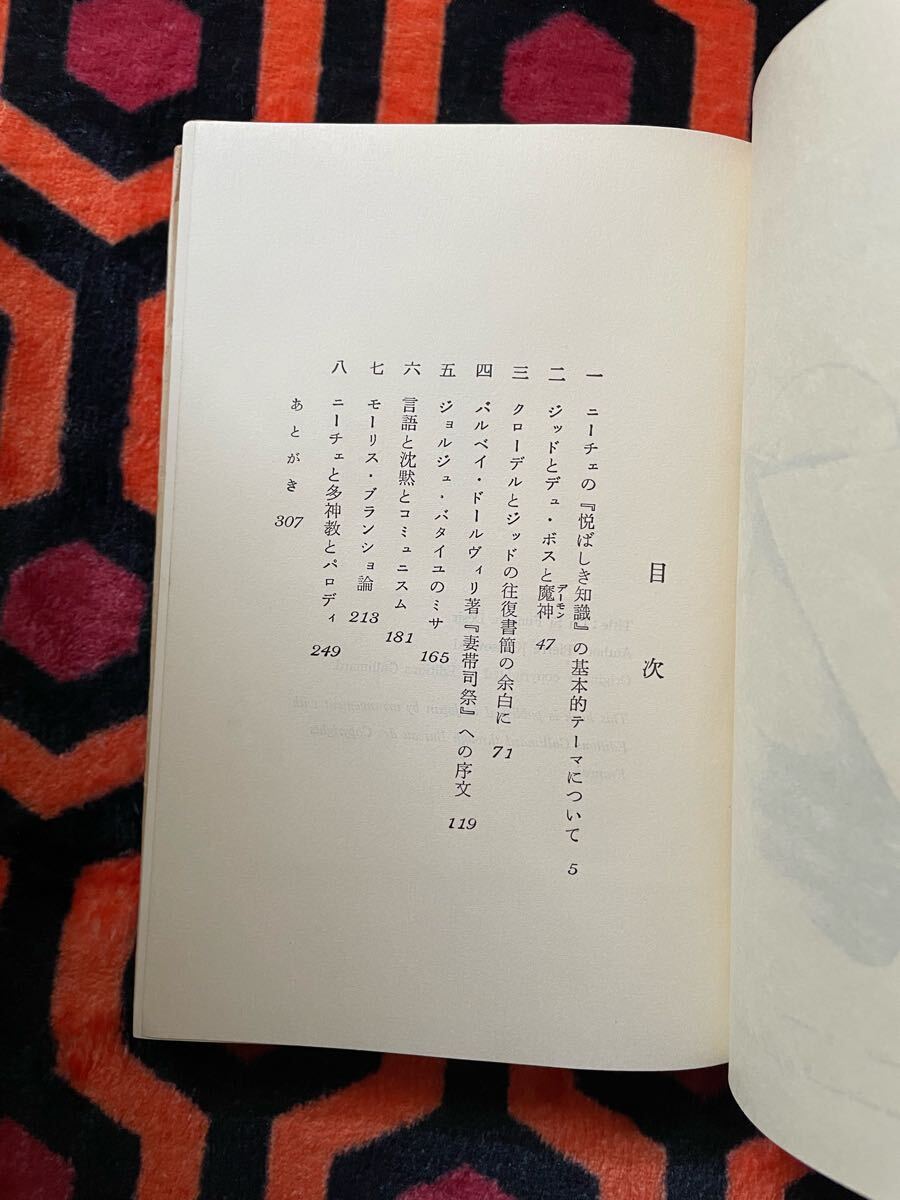 目次
一 ニーチェの『悦ばしき知識』の基本的テーマについて 5
二 ジッドとデュ・ボスと魔神 47
デーモン
三 クローデルとジッドの往復書簡の余白に 71
四 バルベイ・ドールヴィリ著『妻帯司祭』への序文 119
五 ジョルジュ・バタイユのミサ 165
六 言語と沈黙とコミュニスム 181
七 モーリス・ブランショ論 213
八 ニーチェと多神教とパロディ 249
あとがき 307